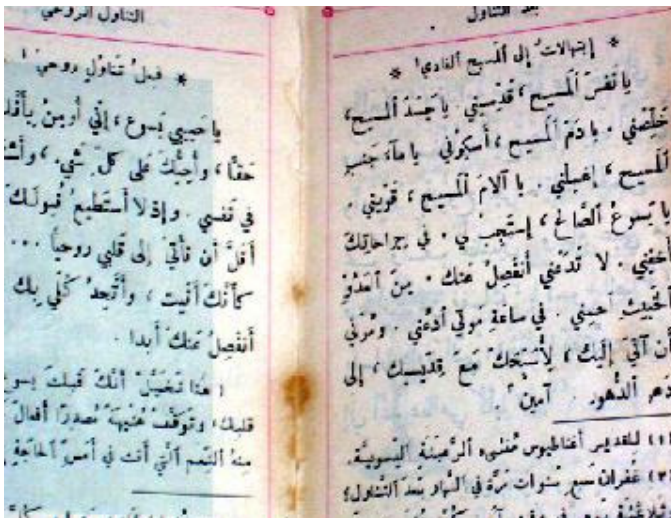 بعد التناول
* إبتهالات إلى ألمسيح ألفادي! *
يا نفسَ ألمسيح، قدّسيني. يا جَسَدَ ألمسيح،
خلّصني. يا دَمَ ألمسيح، أسكِرْني. يا ماء جنبِ
ألمسيح، إغسلني. يا آلامَ ألمسيح، قوّيني.
يا يسوعُ ألصّالح، إستَجِبْ لي. في جِراحاتِكَ
أخفِني. لا تَدَعْني أنفَصِلُ عنك. مِنَ ألعَدُوِّ
ألخبيثِ أحمِني. في ساعةِ مَوتي أدعُني. ومُرْني
أن آتيَ إليك، لأُسَبِّحَكَ مَعَ قِدّيسيك، إلى
دهر ألدُّهور. آمين.
(١) للقديس أغناطيوس مُنشىء ألرَّهبَنةِ أليسوعيَّة.
غفران سبع سنوات مَرَّةً في ألنهار بَعدَ ألتناول؛
التناول الروحي
* فعلُ تناوُلٍ روحيّ!
يا حبيبي يَسوع، إنّي أُومِنُ بأنَّكَ
حَقًّا، وأُحِبُّكَ على كلِّ شيء، و
في نَفسي. وإذ لا أستَطيعُ قُبولَكَ
أقلَّ أن تأتيَ إلى قلبي روحيًّا ...
كأنَّكَ أتيت، وأتَّحِدُ كُلّي بِكَ
أنفَصِلُ عَنكَ أبدا.
(هُنا تخيَّلْ أنَّكَ قَبِلتَ يسوع
قلبِكَ، وتوقَّفْ هُنَيهَةً مُصدِرًا أفعالَ
مِنهُ ألنِّعَم ألّتي أنتَ في أمَسِّ ألحاجةِ